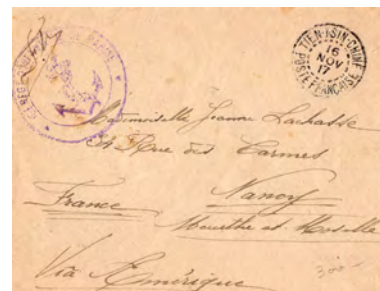 TIEN-TSIN-CHINE
16
NOV
17
POSTE FRANÇAISE
Mademoiselle Jeanne Lachasse
54 Rue des Carmes
Nancy
France
Meurthe et Moselle
Via Amérique
300 -